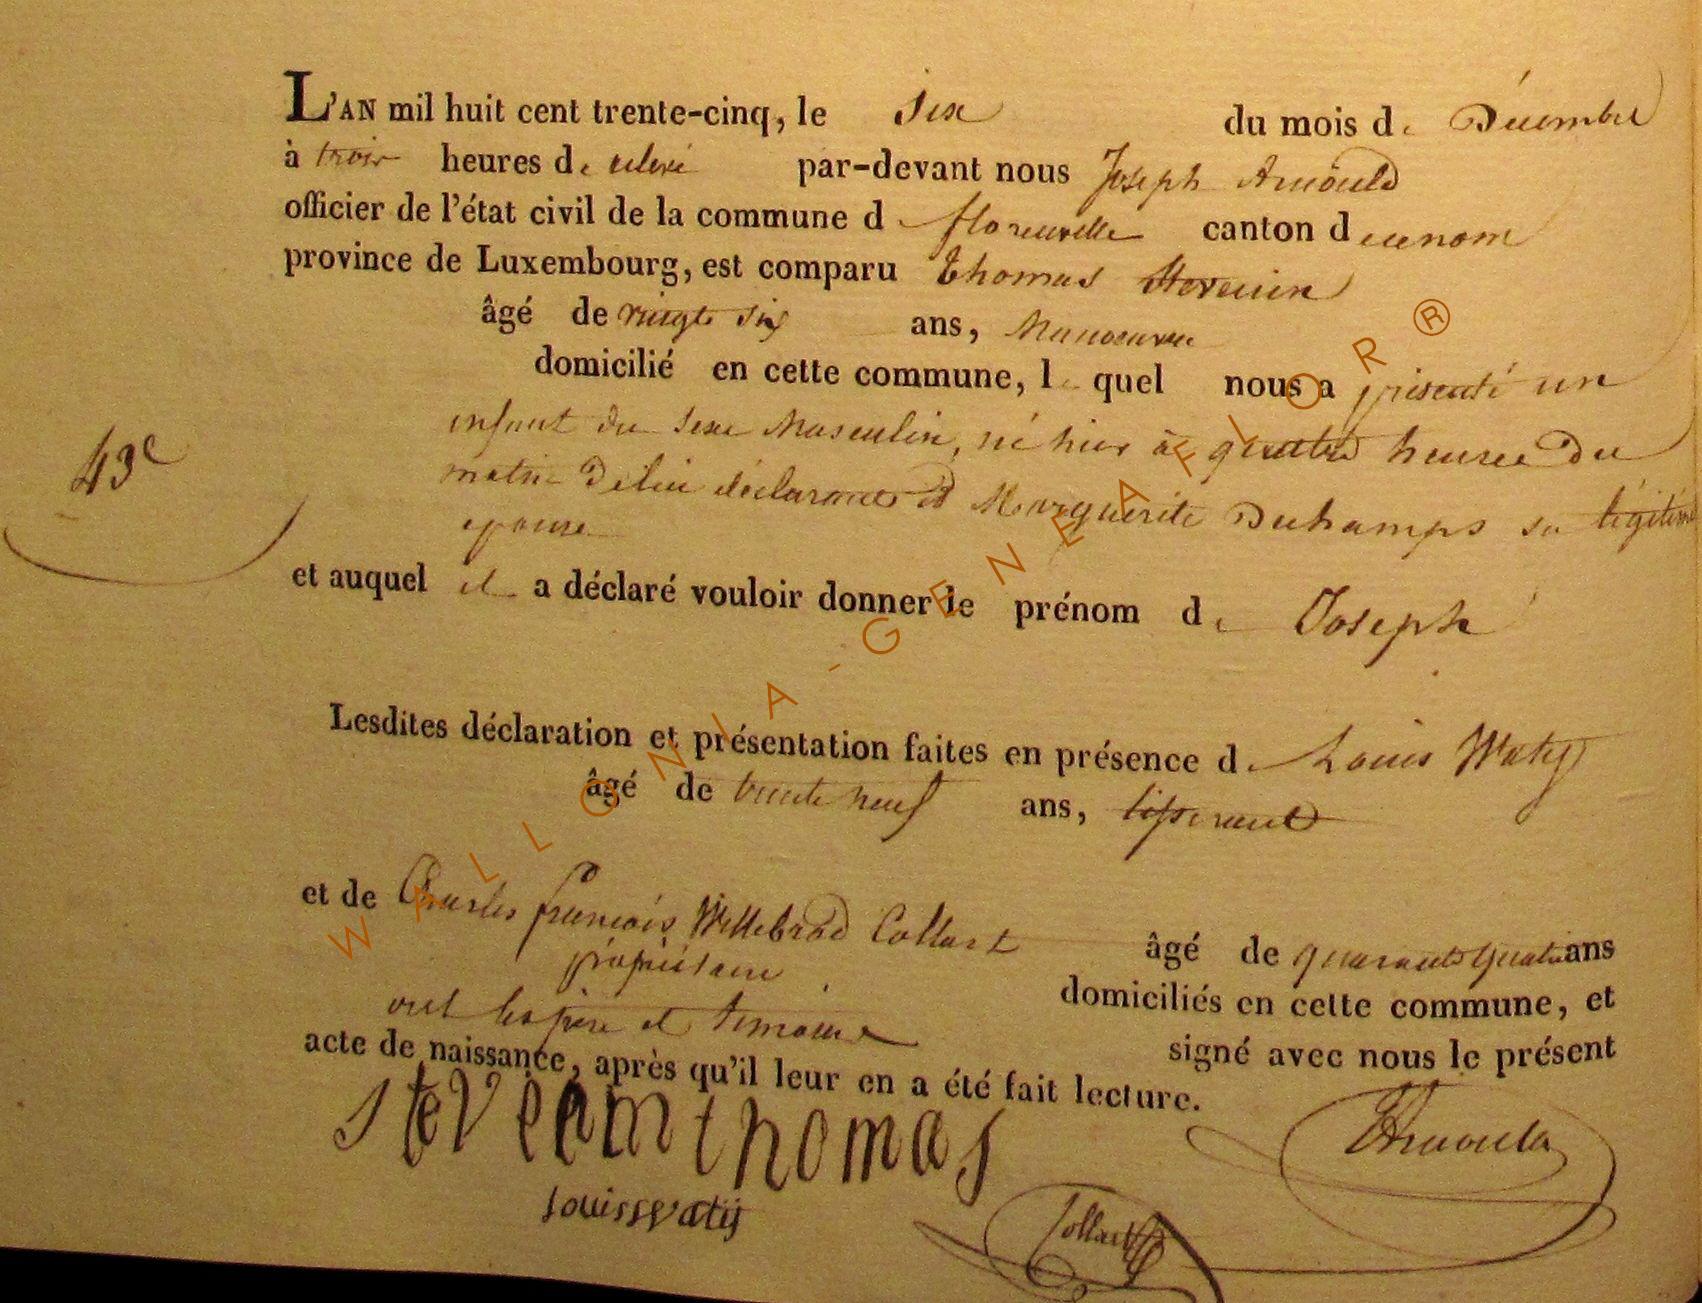 L'AN mil huit cent trente-cinq, le Six du mois de Décembre
à trois heures de relevé par-devant nous Joseph Arnould
officier de l'état civil de la commune de florenville canton de ce nom
province de Luxembourg, est comparu Thomas Stevenin
âgé de vingt six ans, Manoeuvre
domicilié en cette commune, le quel nous a présenté un
43e
enfant du sexe Masculin, né hier à quatre heures du
matin de lui déclarant et Marguerite Duchamps sa légitime
epouse
et auquel il a déclaré vouloir donner le prénom de Joseph
Lesdites déclaration et présentation faites en présence de Louis Watÿ
âgé de trente neuf ans, tisserand
et de Charles françois Willebrod Collart âgé de quarante quatre ans
propriétaire domiciliés en cette commune, et
ont les père et témoins signé avec nous le présent
acte de naissance, après qu'il leur en a été fait lecture.
steveninthomas
Arnould
louiswatij
Collart
WALLONIA-GENEAFIOR®